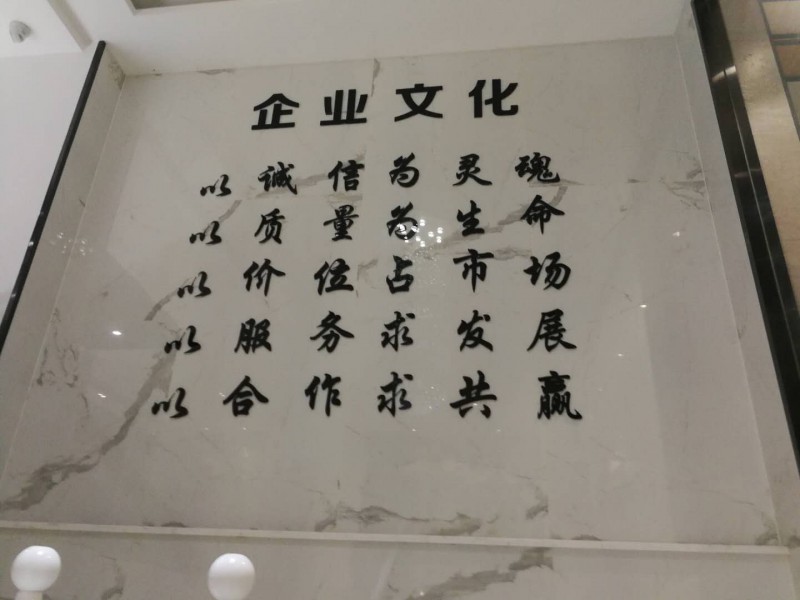 企业文化
以诚信为灵魂
以质量为生命
以价位占市场
以服务求发展
以合作求共赢